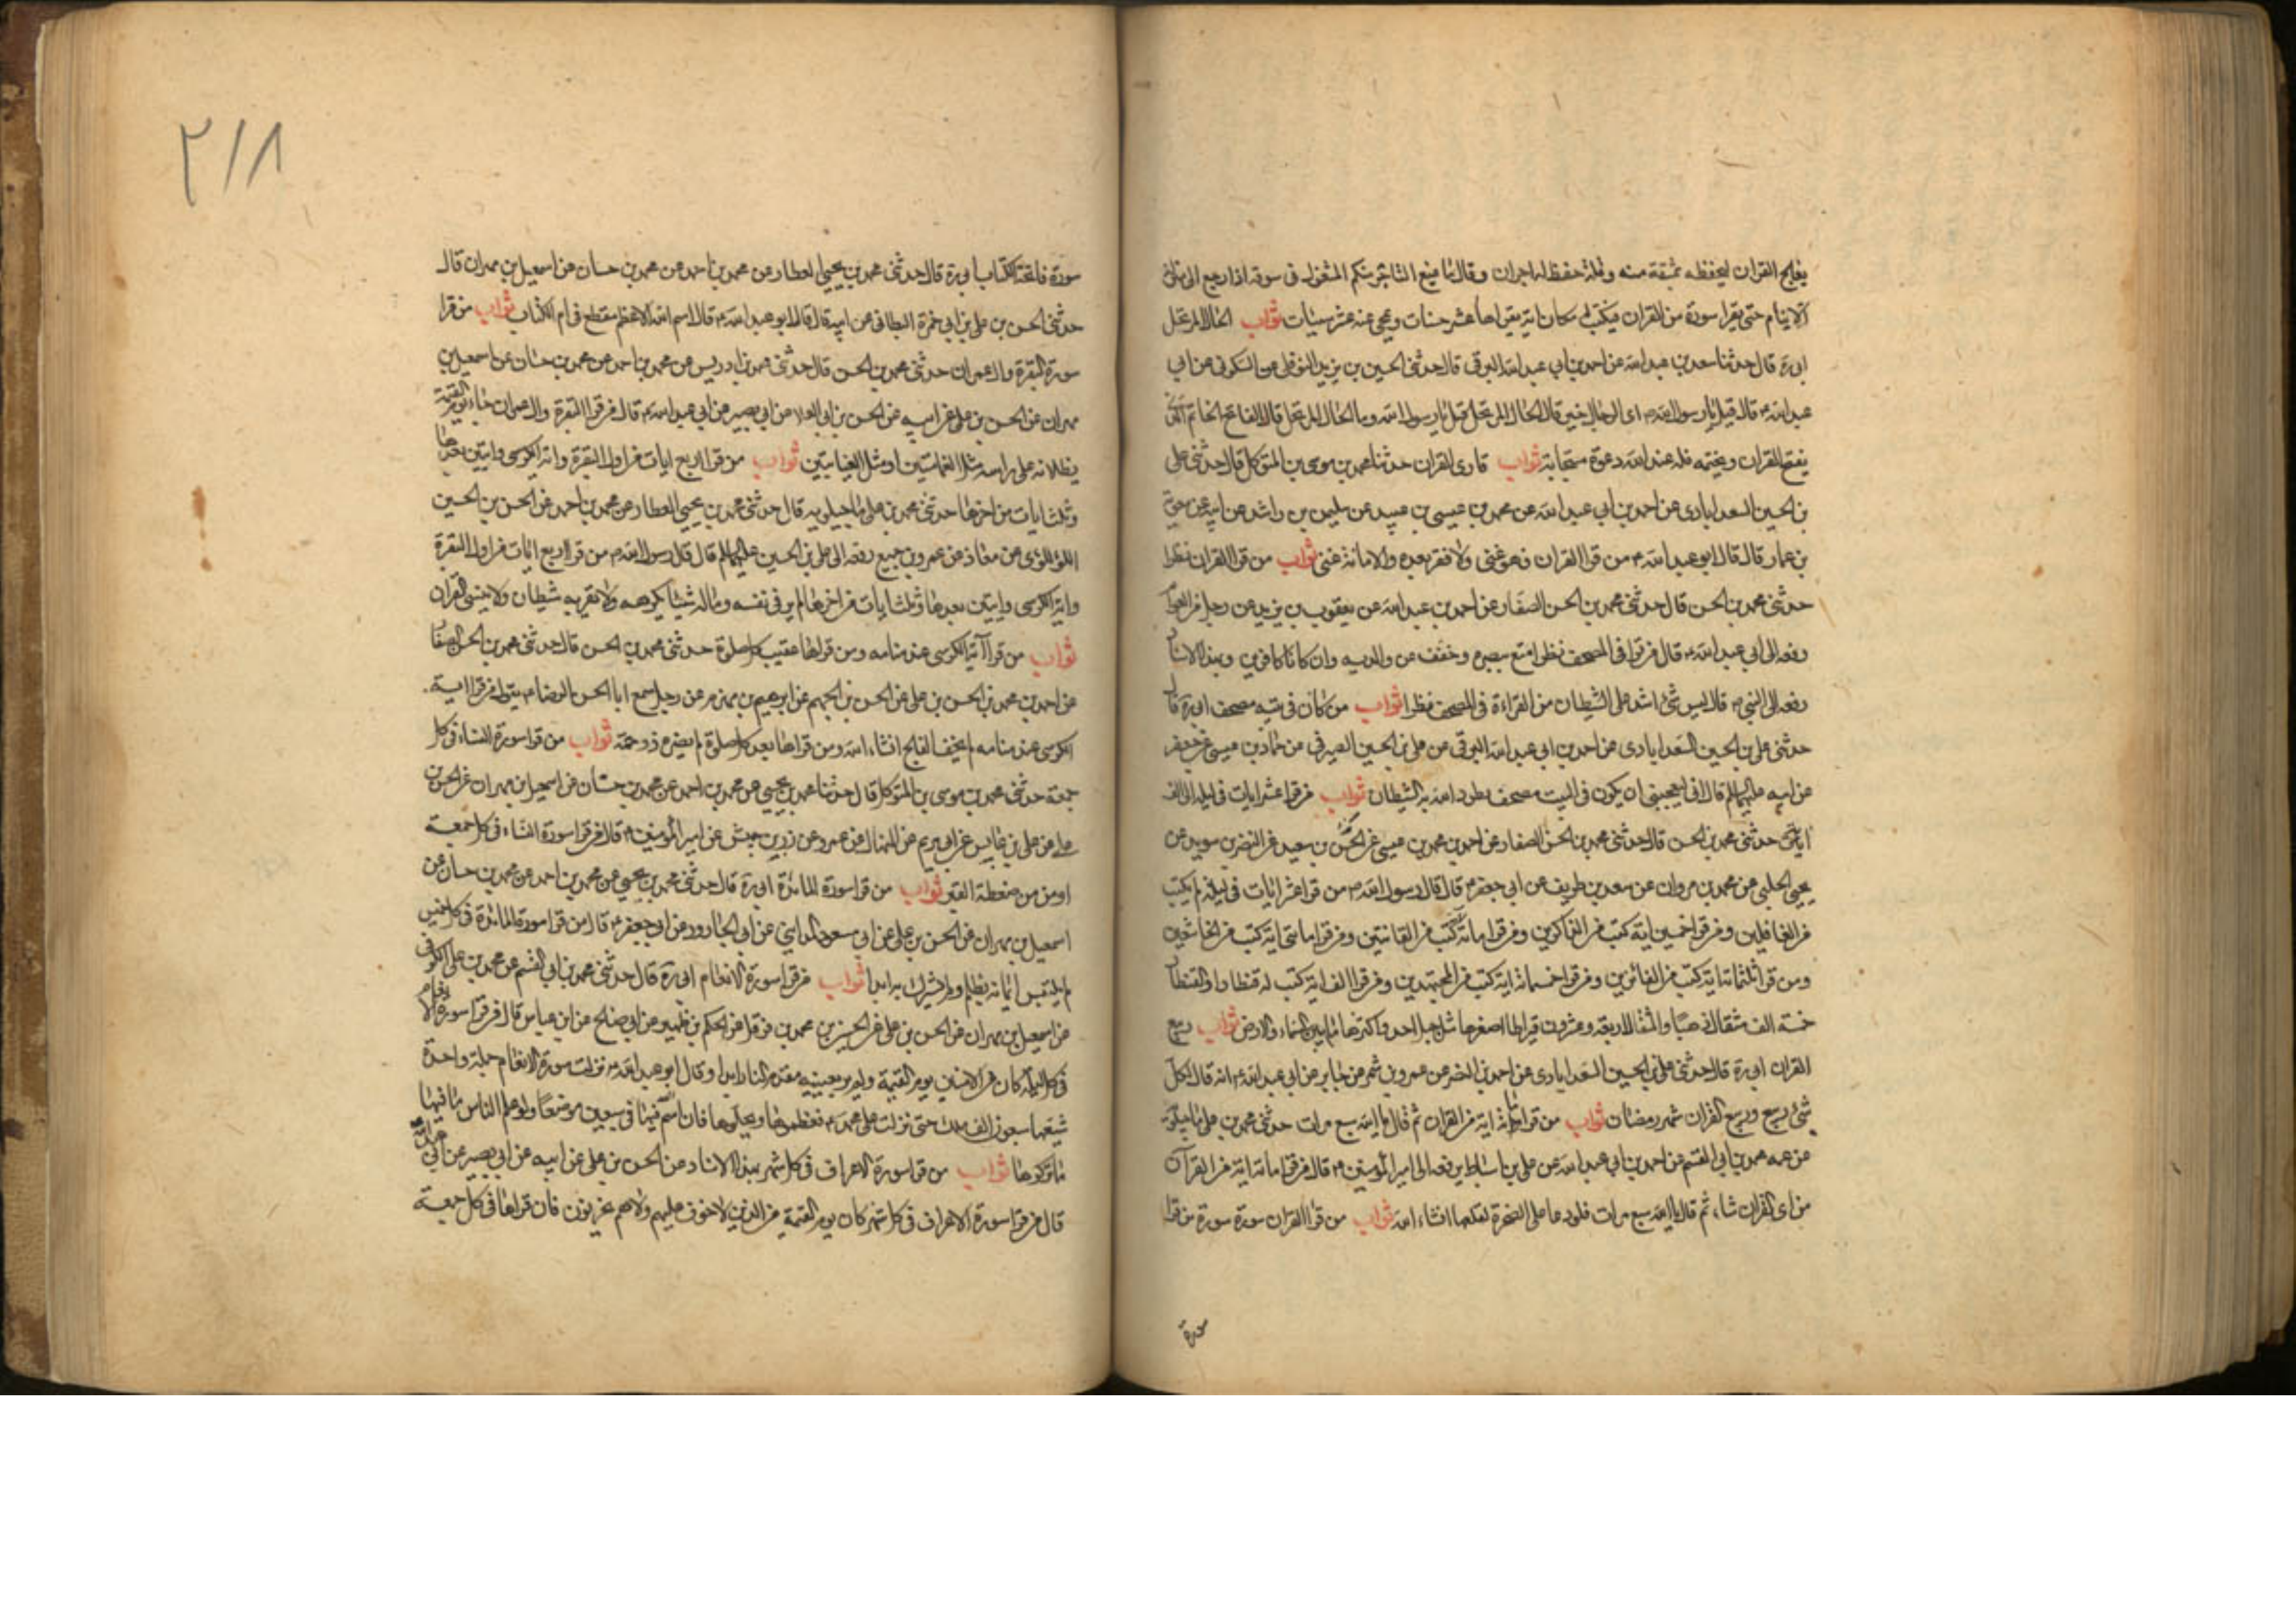 يعالج القران ليحفظه بمشقة منه وقلة حفظ له اجران وقال ما يمنع التاجر منكم المشغول في سوقه اذا رجع الى منزله
ان لا ينام حتى يقرا سورة من القران فيكتب له مكان اية يقراها عشر حسنات ويمحى عنه عشر سيئات ثواب الحال المرتحل
ابي ره قال حدثنا سعد بن عبد الله عن احمد بن ابي عبد الله البرقي قال حدثني الحسين بن يزيد النوفلي عن السكوني عن ابي
عبد الله ع قال قيل يا رسول الله ص اى الرجال خير قال الحال المرتحل قيل يا رسول الله وما الحال المرتحل قال الفاتح الخاتم الذى
يفتح القران ويختمه فله عند الله دعوة مستجابة ثواب قارى القران حدثنا محمد بن موسى بن المتوكل قال حدثني على
بن الحسين السعدابادى عن احمد بن ابي عبد الله عن محمد بن عيسى بن عبيد عن سليمن بن راشد عن ابيه عن معوية
بن عمار قال قال ابو عبد الله ع من قرا القران فهو غنى ولا فقر بعده والا ما به غنى ثواب من قرا القران نظرا
حدثني محمد بن الحسن قال حدثني محمد بن الحسن الصفار عن احمد بن عبد الله عن يعقوب بن يزيد عن رجل من العوام
رفعه الى ابي عبد الله ع قال من قرا في المصحف نظرا متع ببصره وخفف عن والديه وان كانا كافرين وبهذا الاسناد
رفعه الى النبي ص قال ليس شئ اشد على الشيطان من القراءة في المصحف نظرا ثواب من كان في بيته مصحف ابي ره قال
حدثني على بن الحسين السعدابادى عن احمد بن ابي عبد الله البرقي عن على بن الحسين الصيرفي عن حماد بن عيسى عن جعفر
عن ابيه عليهما السلام قال اني ليعجبني ان يكون في البيت مصحف يطرد الله به الشيطان ثواب من قرا عشر ايات في ليلة الى الف
اية حدثني محمد بن الحسن قال حدثني محمد بن الحسن الصفار عن احمد بن محمد بن عيسى عن الحسين بن سعيد عن النضر بن سويد عن
يحيى الحلبي عن محمد بن مروان عن سعد بن طريف عن ابي جعفر ع قال قال رسول الله ص من قرا عشر ايات في ليلة لم يكتب
من الغافلين ومن قرا خمسين اية كتب من الذاكرين ومن قرا مائة اية كتب من القانتين ومن قرا مائتى اية كتب من الخاشعين
ومن قرا ثلثمائة اية كتب من الفائزين ومن قرا خمسمائة اية كتب من المجتهدين ومن قرا الف اية كتب له قنطار والقنطار
خمسة الف مثقال ذهبا والمثقال اربعة وعشرون قيراطا اصغرها مثل جبل احد واكبرها ما بين السماء والارض ثواب ربيع
القران ابي ره قال حدثني على بن الحسين السعدابادى عن احمد بن النضر عن عمرو بن شمر عن جابر عن ابي عبد الله ع انه قال لكل
شئ ربيع وربيع القران شهر رمضان ثواب من قرا مائة اية من القران ثم قال يا الله سبع مرات حدثني محمد بن على ماجيلويه
عن عمه محمد بن ابي القسم عن احمد بن ابي عبد الله عن على بن اسباط يرفعه الى امير المؤمنين ع قال من قرا مائة اية من القرآن
من اى القران شاء ثم قال يا الله سبع مرات فلو دعا على الصخرة لفلقها انشاء الله ثواب من قرا القران سورة سورة من قرا
سورة
٢١٨
سورة فاتحة الكتاب ابي ره قال حدثني محمد بن يحيى العطار عن محمد بن احمد عن محمد بن حسان عن اسمعيل بن مهران قال
حدثني الحسن بن على بن ابي حمزة البطائني عن ابيه قال قال ابو عبد الله ع قال اسم الله الاعظم مقطع في ام الكتاب ثواب من قرا
سورة البقرة وال عمران حدثني محمد بن الحسن قال حدثني احمد بن ادريس عن محمد بن احمد عن محمد بن حسان عن اسمعيل بن
مهران عن الحسن بن على عن ابيه عن الحسن بن ابي العلا عن ابي بصير عن ابي عبد الله ع قال من قرا البقرة وال عمران جاء يوم القيمة
يظلانه على راسه مثل الغمامتين او مثل الغيابتين ثواب من قرا اربع ايات من اول البقرة واية الكرسى وايتين بعدها
وثلث ايات من اخرها حدثني محمد بن على ماجيلويه قال حدثني محمد بن يحيى العطار عن محمد بن احمد عن الحسن بن الحسين
اللؤلؤى عن معاذ عن عمرو بن جميع رفعه الى على بن الحسين عليهما السلم قال قال رسول الله ص من قرا اربع ايات من اول البقرة
واية الكرسى وايتين بعدها وثلث ايات من اخرها لم ير في نفسه وماله شيئا يكرهه ولا يقربه شيطان ولا ينسى القران
ثواب من قرا آية الكرسى عند منامه ومن قراها عقيب كل صلوة حدثني محمد بن الحسن قال حدثني محمد بن الحسن الصفار
عن احمد بن محمد بن الحسن بن على عن الحسن بن الجهم عن ابرهيم بن مهزم عن رجل سمع ابا الحسن الرضا ع يقول من قرا اية
الكرسى عند منامه لم يخف الفالج انشاء الله ومن قراها بعد كل صلوة لم يضره ذو حمة ثواب من قرا سورة النساء في كل
جمعة حدثني محمد بن موسى بن المتوكل قال حدثنا محمد بن يحيى عن محمد بن احمد عن محمد بن حسان عن اسمعيل بن مهران عن الحسن بن
على عن على بن عابس عن ابي مريم عن المنهال بن عمرو عن زر بن حبيش عن امير المؤمنين ع قال من قرا سورة النساء في كل جمعة
اومن من ضغطة القبر ثواب من قرا سورة المائدة ابي ره قال حدثني محمد بن يحيى عن محمد بن احمد عن محمد بن حسان عن
اسمعيل بن مهران عن الحسن بن على عن ابي مسعود المدايني عن ابي الجارود عن ابي جعفر ع قال من قرا سورة المائدة في كل خميس
لم يلتبس ايمانه بظلم ولم يشرك به ابدا ثواب من قرا سورة الانعام ابي ره قال حدثني محمد بن ابي القسم عن محمد بن على الكوفي
عن اسمعيل بن مهران عن الحسن بن على عن الحسين بن محمد بن فرقد عن الحكم بن ظهير عن ابي صالح عن ابن عباس قال من قرا سورة الانعام
في كل ليلة كان من الامنين يوم القيمة ولم ير بعينيه مقدم النار ابدا وقال ابو عبد الله ع نزلت سورة الانعام جملة واحدة
شيعها سبعون الف ملك حتى نزلت على محمد ص فعظموها وبجلوها فان اسم الله فيها في سبعين موضعا ولو علم الناس ما فيها
ما تركوها ثواب من قرا سورة الاعراف في كل شهر بهذا الاسناد عن الحسن بن على عن ابيه عن ابي بصير عن ابي عبد الله
قال من قرا سورة الاعراف في كل شهر كان يوم القيمة من الذين لا خوف عليهم ولا هم يحزنون فان قراها في كل جمعة